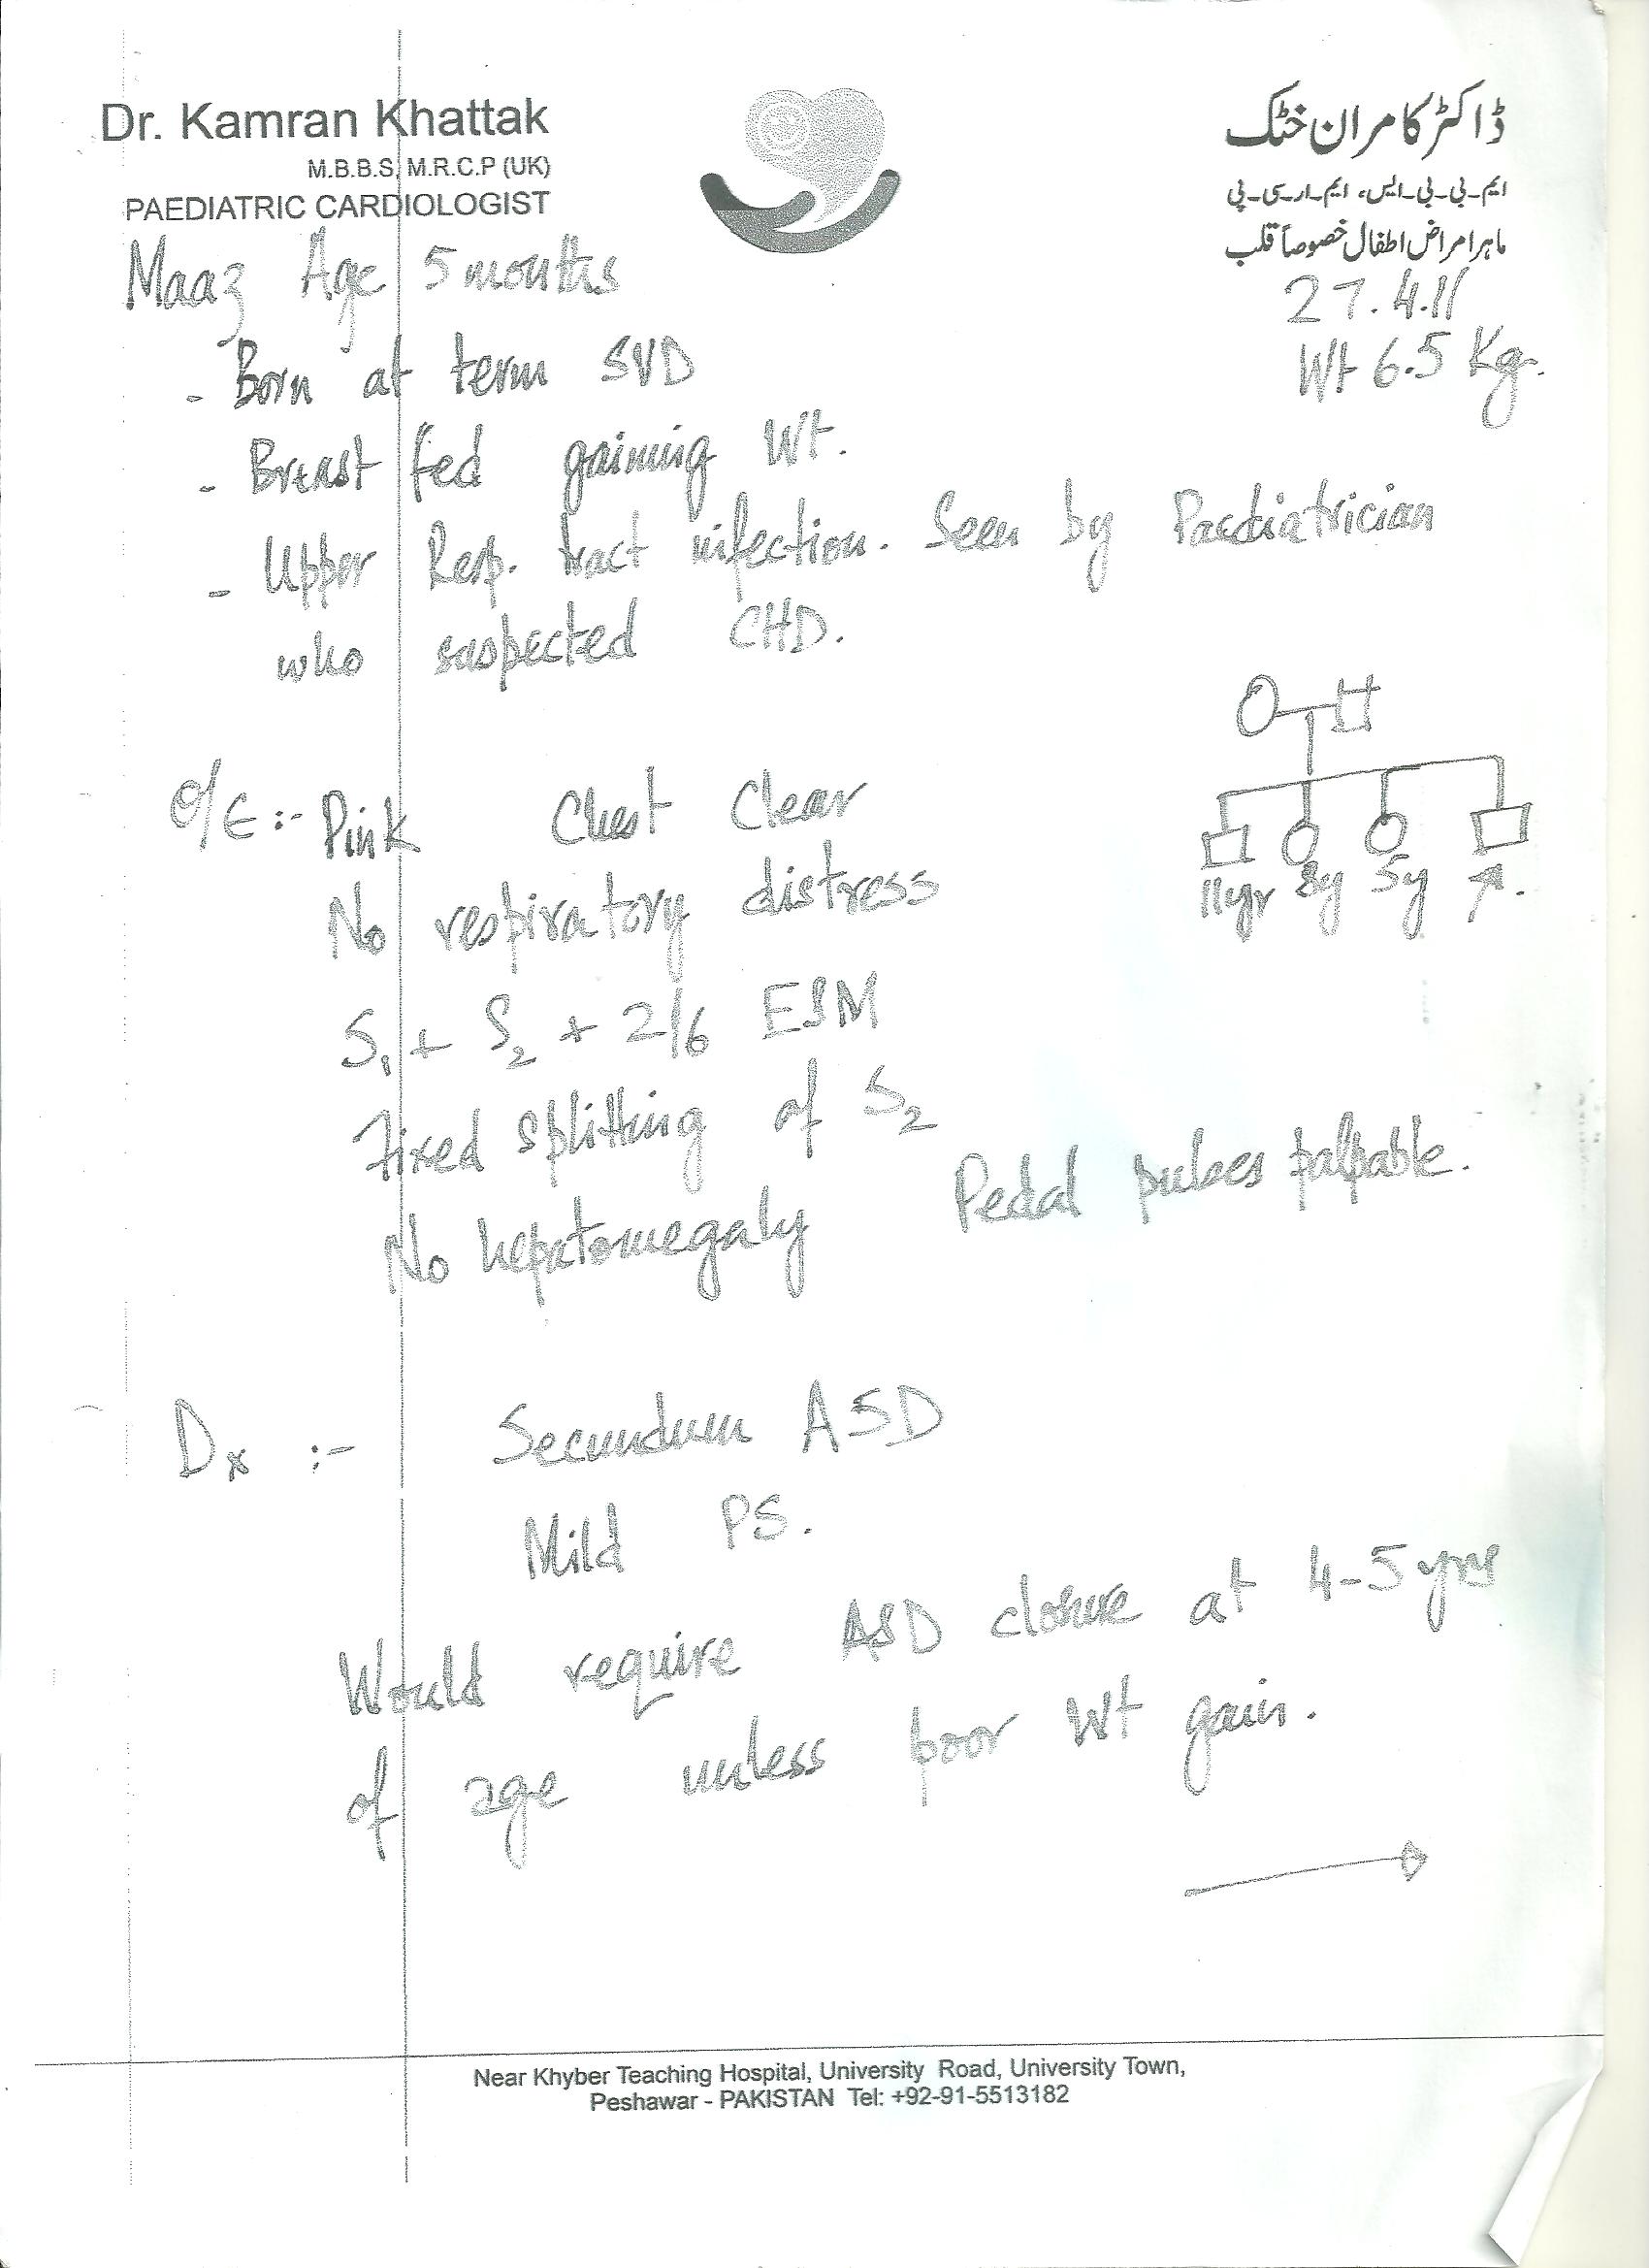 Dr. Kamran Khattak
M.B.B.S, M.R.C.P (UK)
PAEDIATRIC CARDIOLOGIST
ڈاکٹر کامران خٹک
ایم-بی-بی-ایس، ایم-ار-سی-پی
ماہر امراض اطفال خصوصاً قلب
27.4.11
Wt 6.5 Kg.
Maaz Age 5 months
- Born at term SVD
- Breast fed gaining Wt.
- Upper Resp. tract infection. Seen by Paediatrician
who suspected CHD.
O/E :- Pink Chest Clear
No respiratory distress
11yr 8y 5y
S1 + S2 + 2/6 ESM
Fixed splitting of S2
No hepatomegaly Pedal pulses palpable.
Dx :- Secundum ASD
Mild PS.
Would require ASD closure at 4-5 yrs
of age unless poor Wt gain.
Near Khyber Teaching Hospital, University Road, University Town,
Peshawar - PAKISTAN Tel: +92-91-5513182